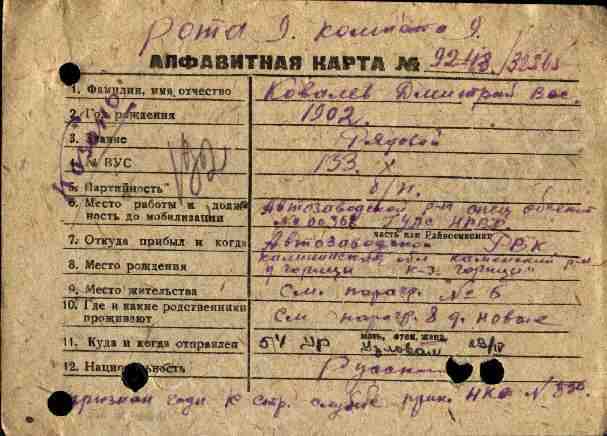 Рота 9. комната 9.
АЛФАВИТНАЯ КАРТА № 9248/
1. Фамилия, имя, отчество Ковалев Дмитрий Вас.
2. Год рождения 1902.
3. Звание Рядовой
4. № ВУС 133.
5. Партийность б/п.
6. Место работы и долж-
ность до мобилизации Автозаводской р-на спец.
часть или Райвоенкомат
7. Откуда прибыл и когда Автозаводской РВК
Калининская обл каменский р-н
8. Место рождения д горицы к-з. горицы
9. Место жительства См. парагр. № 6
10. Где и какие родственники
проживают См парагр. 8 д. новые
мать, отец, жена,
11. Куда и когда отправлен 54 УР 23/IV
12. Национальность Русск
признан годн к стр. службе прик. НКО № 336.